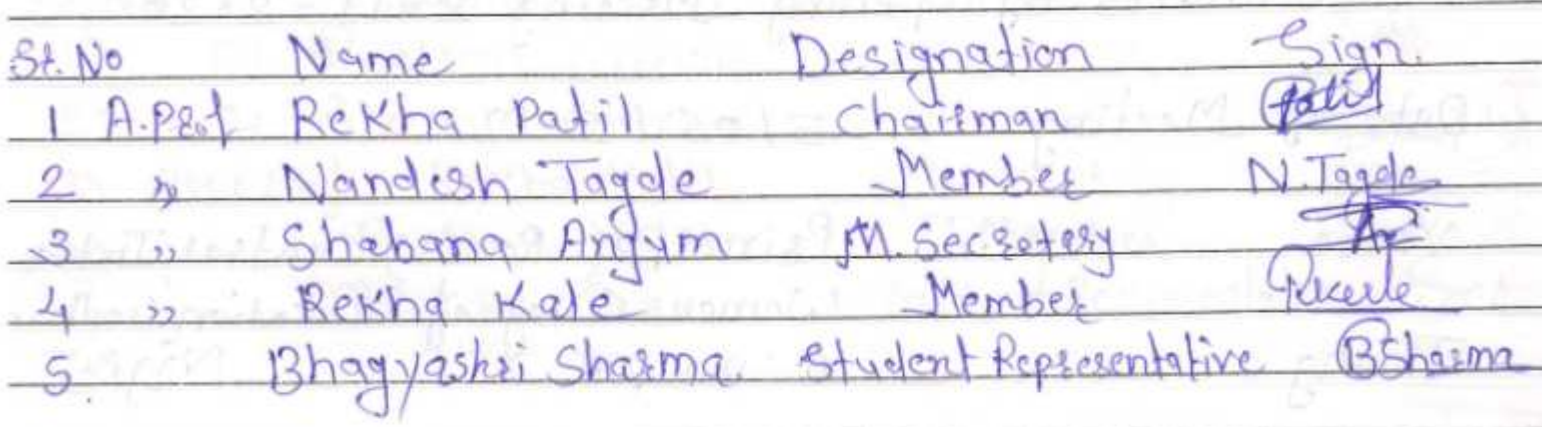 Sr. No Name Designation Sign.
1 A.Prof Rekha Patil Chairman Patil
2 " Nandesh Tagde Member N.Tagde
3 " Shabana Anjum M. Secretary
4 " Rekha Kale Member
5. Bhagyashri Sharma Student Representative BSharma